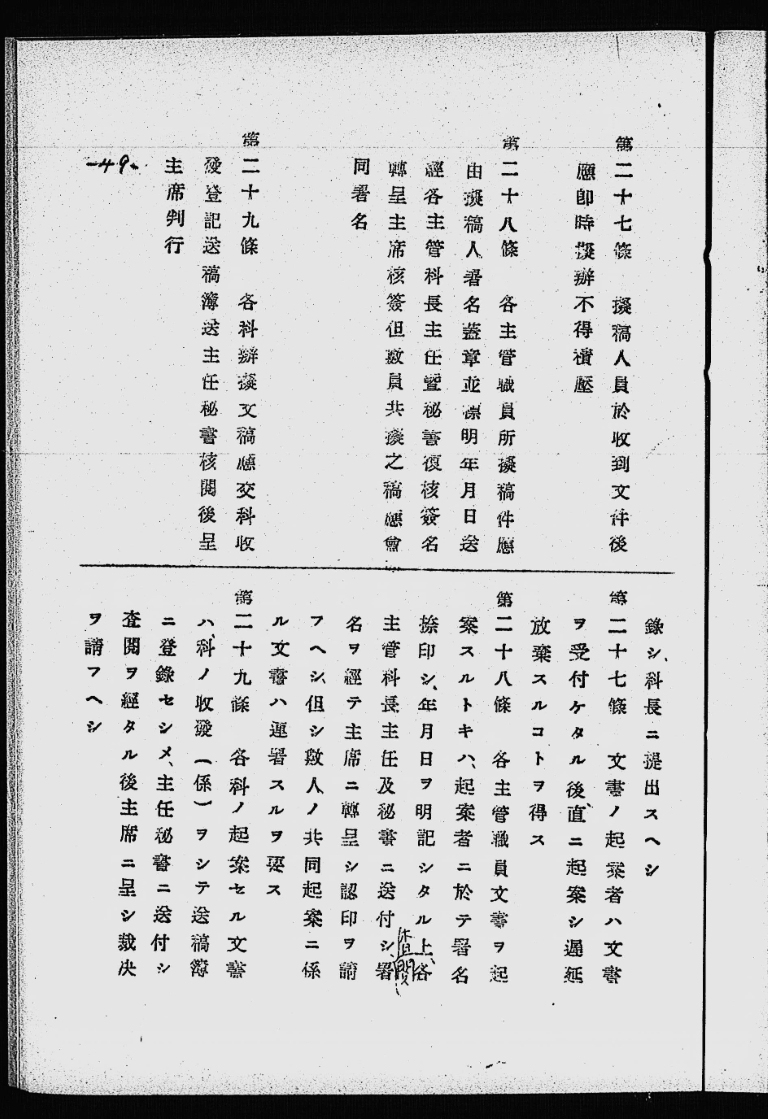 第二十七條　擬稿人員於收到文件後
應卽時擬辦不得積壓
第二十八條　各主管職員所擬稿件應
由擬稿人署名蓋章並標明年月日送
經各主管科長主任曁秘書復核簽名
轉呈主席核簽但數員共擬之稿應會
同署名
第二十九條　各科辦擬文稿應交科收
發登記送稿簿送主任秘書核閱後呈
主席判行
-49-
錄シ、科長ニ提出スヘシ
第二十七條　文書ノ起案者ハ文書
ヲ受付ケタル後、直ニ起案シ遲延
放棄スルコトヲ得ス
第二十八條　各主管職員文書ヲ起
案スルトキハ、起案者ニ於テ署名
捺印シ、年月日ヲ明記シタル上、各
主管科長主任及秘書ニ送付シ、署
名ヲ經テ主席ニ轉呈シ認印ヲ請
フヘシ、但シ數人ノ共同起案ニ係
ル文書ハ連署スルヲ要ス
第二十九條　各科ノ起案セル文書
ハ、科ノ收發（係）ヲシテ送稿簿
ニ登錄セシメ、主任秘書ニ送付シ
查閱ヲ經タル後主席ニ呈シ裁决
ヲ請フヘシ